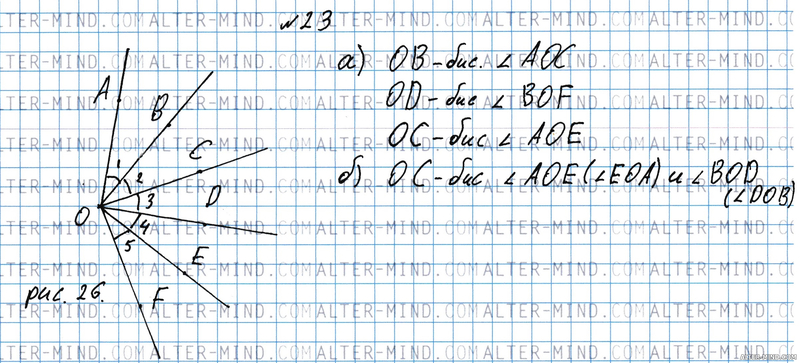 №23
а) OB-бис. ∠ AOC
OD-бис ∠ BOF
OC-бис ∠ AOE
б) OC-бис ∠ AOE (∠EOA) и ∠BOD
(∠DOB)
A
B
C
D
E
F
O
1
2
3
4
5
рис. 26.
ALTER-MIND.COM